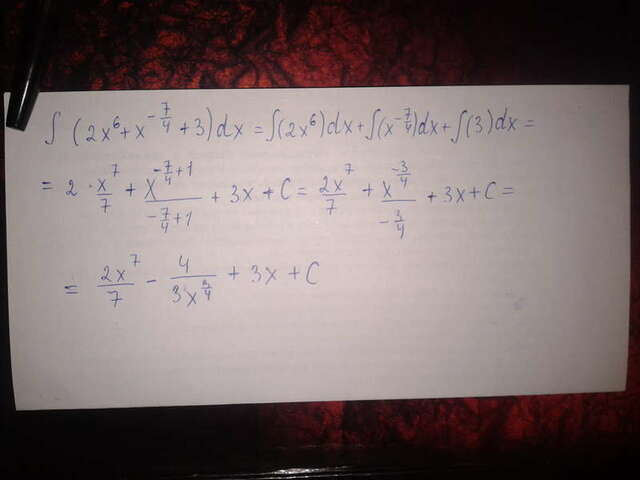 ∫ (2x^6 + x^{-7/4} + 3) dx = ∫(2x^6) dx + ∫(x^{-7/4}) dx + ∫(3) dx =
= 2 · x^7/7 + x^{-7/4+1}/(-7/4+1) + 3x + C = 2x^7/7 + x^{-3/4}/(-3/4) + 3x + C =
= 2x^7/7 - 4/(3x^{3/4}) + 3x + C